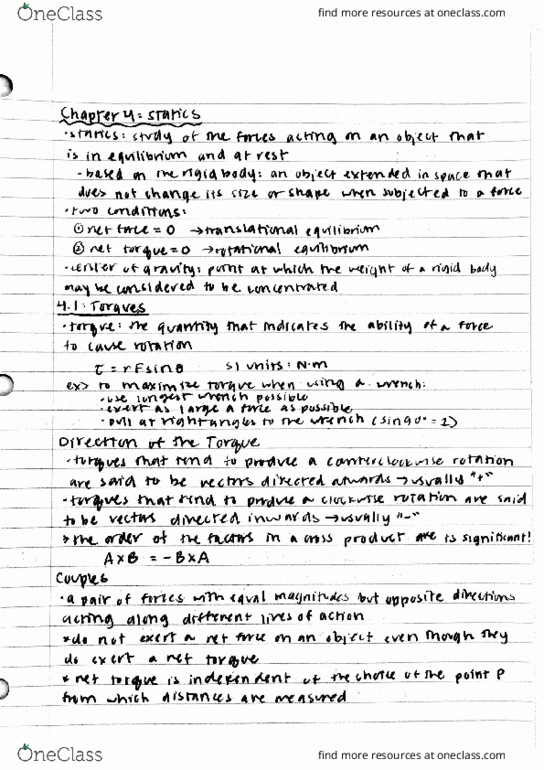 OneClass
find more resources at oneclass.com
Chapter 4: Statics
• statics: study of the forces acting on an object that
is in equilibrium and at rest
- based on the rigid body: an object extended in space that
does not change its size or shape when subjected to a force
• two conditions:
① net force = 0 → translational equilibrium
② net torque = 0 → rotational equilibrium
• center of gravity: point at which the weight of a rigid body
may be considered to be concentrated
4.1: Torques
• torque: the quantity that indicates the ability of a force
to cause rotation
τ = rFsinθ SI units: N·m
ex> to maximize torque when using a wrench:
• use longest wrench possible
• exert as large a force as possible
• pull at right angles to the wrench (sin90° = 1)
Direction of the Torque
• torques that tend to produce a counterclockwise rotation
are said to be vectors directed outwards → usually "+"
• torques that tend to produce a clockwise rotation are said
to be vectors directed inwards → usually "-"
* the order of the factors in a cross product are is significant!
A×B = -B×A
Couples
• a pair of forces with equal magnitudes but opposite directions
acting along different lines of action
* do not exert a net force on an object even though they
do exert a net torque
* net torque is independent of the choice of the point P
from which distances are measured
OneClass
find more resources at oneclass.com